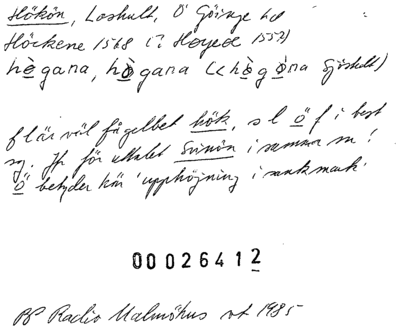 Hökön, Loshult, Ö Göinge hd
Höckene 1568 (? Høyeø 1552)
hègana, hògana (<hògòna Sjöholt)
f l är väl fågelbet hök, s l ö f i best
sg. Jfr för uttalet Svinön i samma sn!
Ö betyder här 'upphöjning i sankmark'
00026412
BP Radio Malmöhus vt 1985